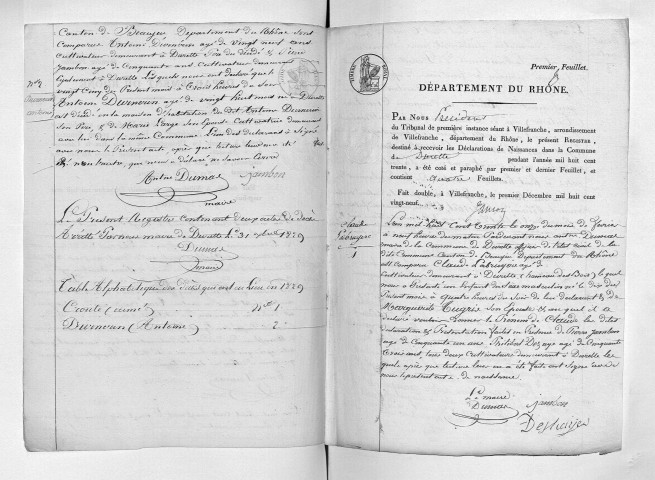 Canton de Beaujeu Département du Rhône sont
Comparus Antoine Durnerin agé de vingt neuf ans
Cultivateur demeurant à Durette Père du
Jambon agé de Cinquante ans Cultivateur demeurant
également à Durette Lesquels nous ont declaré que le
vingt Cinq du Présent mois à trois heures du Soir
Antoine agé de vingt huit mois né à Durette
est décédé en la maison d'habitation du dit Antoine
Son Père & de Marie Large son Epouse Cultivatrice demeurant
avec lui dans la même Commune. L'un des declarants à Signé
avec nous le Présent acte après que lecture leur en a été
non l'autre, qui nous a déclaré ne Savoir Ecrire
Jambon
Dumas
maire
Le Présent Registre Contenant deux actes de décès
Arrêté Par nous maire de Durette le 31 1829
Dumas
maire
Table Alphabétique des décès qui ont eu lieu en 1829
N° 1
(Antoine) 2
Premier Feuillet.
DÉPARTEMENT DU RHÔNE.
PAR NOUS Président
du Tribunal de première instance séant à Villefranche, arrondissement
de Villefranche, département du Rhône, le présent REGISTRE,
destiné à recevoir les Déclarations de Naissances dans la Commune
de Durette pendant l'année mil huit cent
trente, a été coté et paraphé par premier et dernier Feuillet, et
contient quatre Feuillets.
Fait double, à Villefranche, le premier Décembre mil huit cent
vingt-neuf.
Claude
1
L'an mil huit Cent trente le onze du mois de
à neuf heures du matin Pardevant nous
maire de la Commune de Durette officier de l'état civil de la
dite Commune Canton de Beaujeu Département du Rhône
est Comparu Claude agé de
Cultivateur demeurant à Durette lequel
nous a Présenté un Enfant du sexe masculin né le dix du
Présent mois à quatre heures du Soir de lui declarant & de
Marguerite son Epouse & au quel il a
déclaré vouloir donner le Prénom de Claude les dites
déclaration & Présentation faites en Présence de Pierre Jambon
agé de Cinquante un ans & Philibert agé de Cinquante
trois ans tous deux Cultivateurs demeurant à Durette les
quels après que lecture leur en a été faite ont Signé avec
nous le présent acte de naissance.
Le maire
Dumas
Jambon